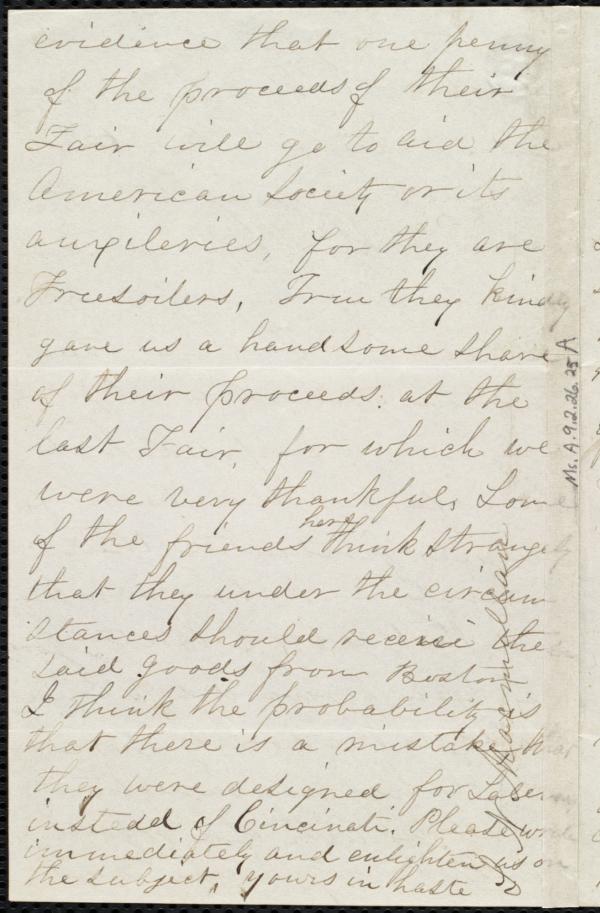 evidence that one penny
of the proceeds of their
Fair will go to aid the
American Society or its
auxileries, for they are
Freesoilers, True they kindly
gave us a handsome share
of their proceeds. at the
last Fair, for which we
were very thankful, Some
of the friends here think strangely
that they under the circum
stances should receive the
said goods from Boston
I think the probability is
that there is a mistake that
they were designed for Salem
instedd of Cincinati. Please write
immediately and enlighten us on
the subject, yours in haste
Ms. A. 9.2.26. 25 A